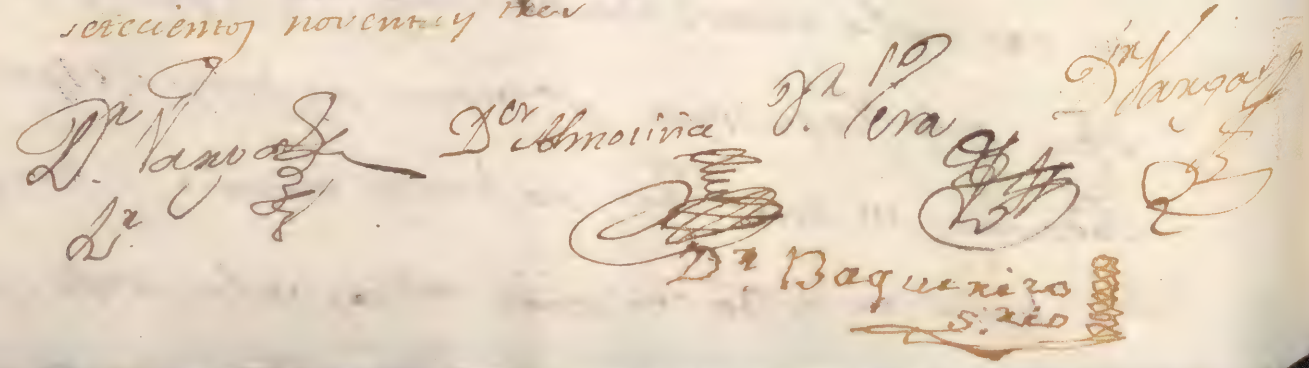 setecientos noventa y tres
Dn. Vargas Dor Almoina Dn. Pera Dn Vargas
Dr. Baqueriro
S.rio